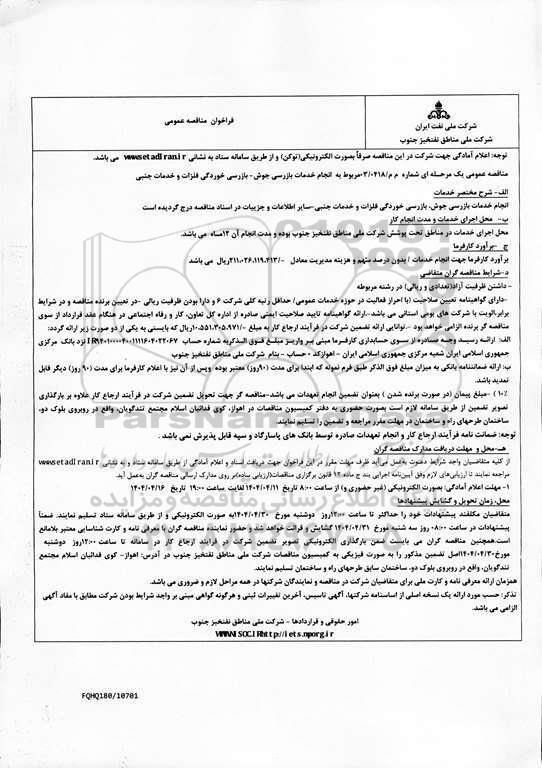 شرکت ملی نفت ایران
شرکت ملی مناطق نفتخیز جنوب
فراخوان مناقصه عمومی
توجه: اعلام آمادگی جهت شرکت در این مناقصه صرفاً بصورت الکترونیکی(توکن) و از طریق سامانه ستاد به نشانی www.setadiran.ir می باشد.
مناقصه عمومی یک مرحله ای شماره م م/۰۳/۰۴۱۸مربوط به انجام خدمات بازرسی جوش- بازرسی خوردگی فلزات و خدمات جنبی
الف- شرح مختصر خدمات
انجام خدمات بازرسی جوش، بازرسی خوردگی فلزات و خدمات جنبی-سایر اطلاعات و جزییات در اسناد مناقصه درج گردیده است
ب- محل اجرای خدمات و مدت انجام کار
محل اجرای خدمات در مناطق تحت پوشش شرکت ملی مناطق نفتخیز جنوب بوده و مدت انجام آن ۱۲ماه می باشد.
ج -برآورد کارفرما
برآورد کارفرما جهت انجام خدمات / بدون درصد متهم و هزینه مدیریت معادل /-۲۱۱،۰۲۶،۱۱۹،۴۱۳ریال می باشد
د-شرایط مناقصه گران متقاضی
- داشتن ظرفیت آزاد(تعدادی و ریالی) در رشته مربوطه
-دارای گواهینامه تعیین صلاحیت (با احراز فعالیت در حوزه خدمات عمومی/ حداقل رتبه کلی شرکت ۶ و دارا بودن ظرفیت ریالی -در تعیین برنده مناقصه و در شرایط
برابر،الویت با شرکت های بومی استانی می باشد.-ارائه گواهینامه تایید صلاحیت ایمنی صادره از اداره کل تعاون، کار و رفاه اجتماعی در هنگام عقد قرارداد از سوی
مناقصه گر برنده الزامی خواهد بود .-توانایی ارائه تضمین شرکت در فرآیند ارجاع کار به مبلغ /-۱۰،۵۵۱،۳۰۵،۹۷۱ریال که بایستی به یکی از دو صورت زیر ارائه گردد:
الف: ارائـه رسـید وجـه صـادره از سـوی حسابداری کارفـرما مبنی بـر واریـز مبلـغ فـوق الـذکربه شماره حساب نزد بانک مرکزی
جمهوری اسلامی ایران شعبه مرکزی جمهوری اسلامی ایران - اهوازکد - حساب - بنام شرکت ملی مناطق نفتخیز جنوب
ب: ارائه ضمانتنامه بانکی به میزان مبلغ فوق الذکر طبق فرم نمونه که ابتدا برای مدت (۹۰روز) معتبر بوده وپس از آن نیز با اعلام کارفرما برای مدت (۹۰ روز) دیگر قابل
تمدید باشد.
۱۰٪ ) -مبلغ پیمان (در صورت برنده شدن ) بعنوان تضمین انجام تعهدات می باشد-مناقصه گر جهت تحویل تضمین شرکت در فرآیند ارجاع کار علاوه بر بارگذاری
تصویر تضمین از طریق سامانه لازم است بصورت حضوری به دفتر کمیسیون مناقصات در اهواز، کوی فدائیان اسلام مجتمع تندگویان، واقع در روبروی بلوک دو،
ساختمان طرحهای راه و ساختمان در مهلت مقرر مراجعه و تضمین را تسلیم نمایند.
توجه : ضمانت نامه فرآیند ارجاع کار و انجام تعهدات صادره توسط بانک های پاسارگاد و سپه قابل پذیرش نمی باشد .
هـ-محل و مهلت دریافت مدارک مناقصه گران
از کلیه متقاضیان واجد شرایط دعوت به عمل می‌آید ظرف مهلت مقرر در این فراخوان جهت دریافت اسناد و اعلام آمادگی از طریق سامانه ستاد و به نشانی www.setadiran.ir
مراجعه نمایند تا ارزیابی‌های لازم وفق آیین‌نامه اجرایی بند ج ماده ۱۲ قانون برگزاری مناقصات(ارزیابی ساده)بر روی مدارک ارسالی مناقصه گران به‌عمل آید.
۱- مهلت اعلام آمادگی: بصورت الکترونیکی (غیر حضوری و) از ساعت ۸:۰۰ تاریخ ۱۴۰۴/۰۴/۱۱ لغایت .ساعت ۱۹:۰۰ تاریخ ۱۴۰۴/۰۴/۱۶
محل، زمان تحویل و گشایش پیشنهادها
متقاضیان مکلفند پیشنهادات خود را حداکثر تا ساعت ۱۲:۰۰روز دوشنبه مورخ ۱۴۰۴/۰۴/۳۰به صورت الکترونیکی و از طریق سامانه ستاد تسلیم نمایند. ضمناً
پیشنهادات در ساعت ۰۸:۰۰ روز سه شنبه مورخ ۱۴۰۴/۰۴/۳۱ گشایش و قرائت خواهد شد و حضور نماینده مناقصه گران با معرفی نامه و کارت شناسایی معتبر بلامانع
است.همچنین مناقصه گران می بایست ضمن بارگذاری الکترونیکی تصویر تضمین شرکت در فرایند ارجاع کار در سامانه تا ساعت ۱۲:۰۰روز دوشنبه
مورخ۱۴۰۴/۰۴/۳۰اصل تضمین مذکور را به صورت فیزیکی به کمیسیون مناقصات شرکت ملی مناطق نفتخیز جنوب در آدرس: اهواز- کوی فدائیان اسلام مجتمع
تندگویان، واقع در روبروی بلوک دو، ساختمان سابق طرحهای راه و ساختمان تسلیم نمایند.
همزمان ارائه معرفی نامه و کارت ملی برای متقاضیان شرکت در مناقصه و نمایندگان شرکتها در همه مراحل لازم و ضروری می باشد.
تذکر: حسب مورد ارائه یک نسخه اصلی از اساسنامه شرکتها، آگهی تاسیس، آخرین تغییرات ثبتی و هرگونه گواهی مبنی بر واجد شرایط بودن شرکت مطابق با مفاد آگهی
الزامی می باشد.
امور حقوقی و قراردادها - شرکت ملی مناطق نفتخیز جنوب
WWW.NISOC.IRhttp://iets.mporg.ir
FQHQ180/10701
ParsNamadData